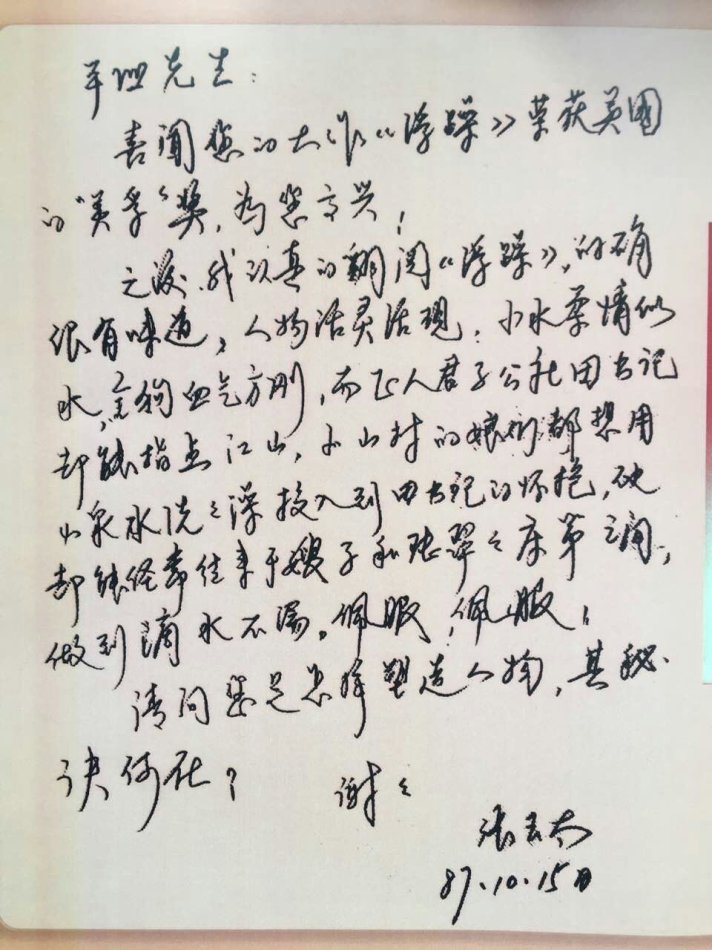 平凹先生：
喜闻您的大作《浮躁》荣获英国
的“美孚”奖，为您高兴！
之后，我认真的翻阅《浮躁》，的确
很有味道，人物活灵活现，小水柔情似
水，金狗血气方刚，而正人君子公社田书记
却能指点江山，小山村的娘们都想用
山泉水洗洗澡投入到田书记的怀抱，他
却能经常往来于嫂子和陆翠翠床笫之间，
做到滴水不漏，佩服，佩服！
请问您是怎样塑造人物，其秘
诀何在？ 谢谢
张
87.10.15日